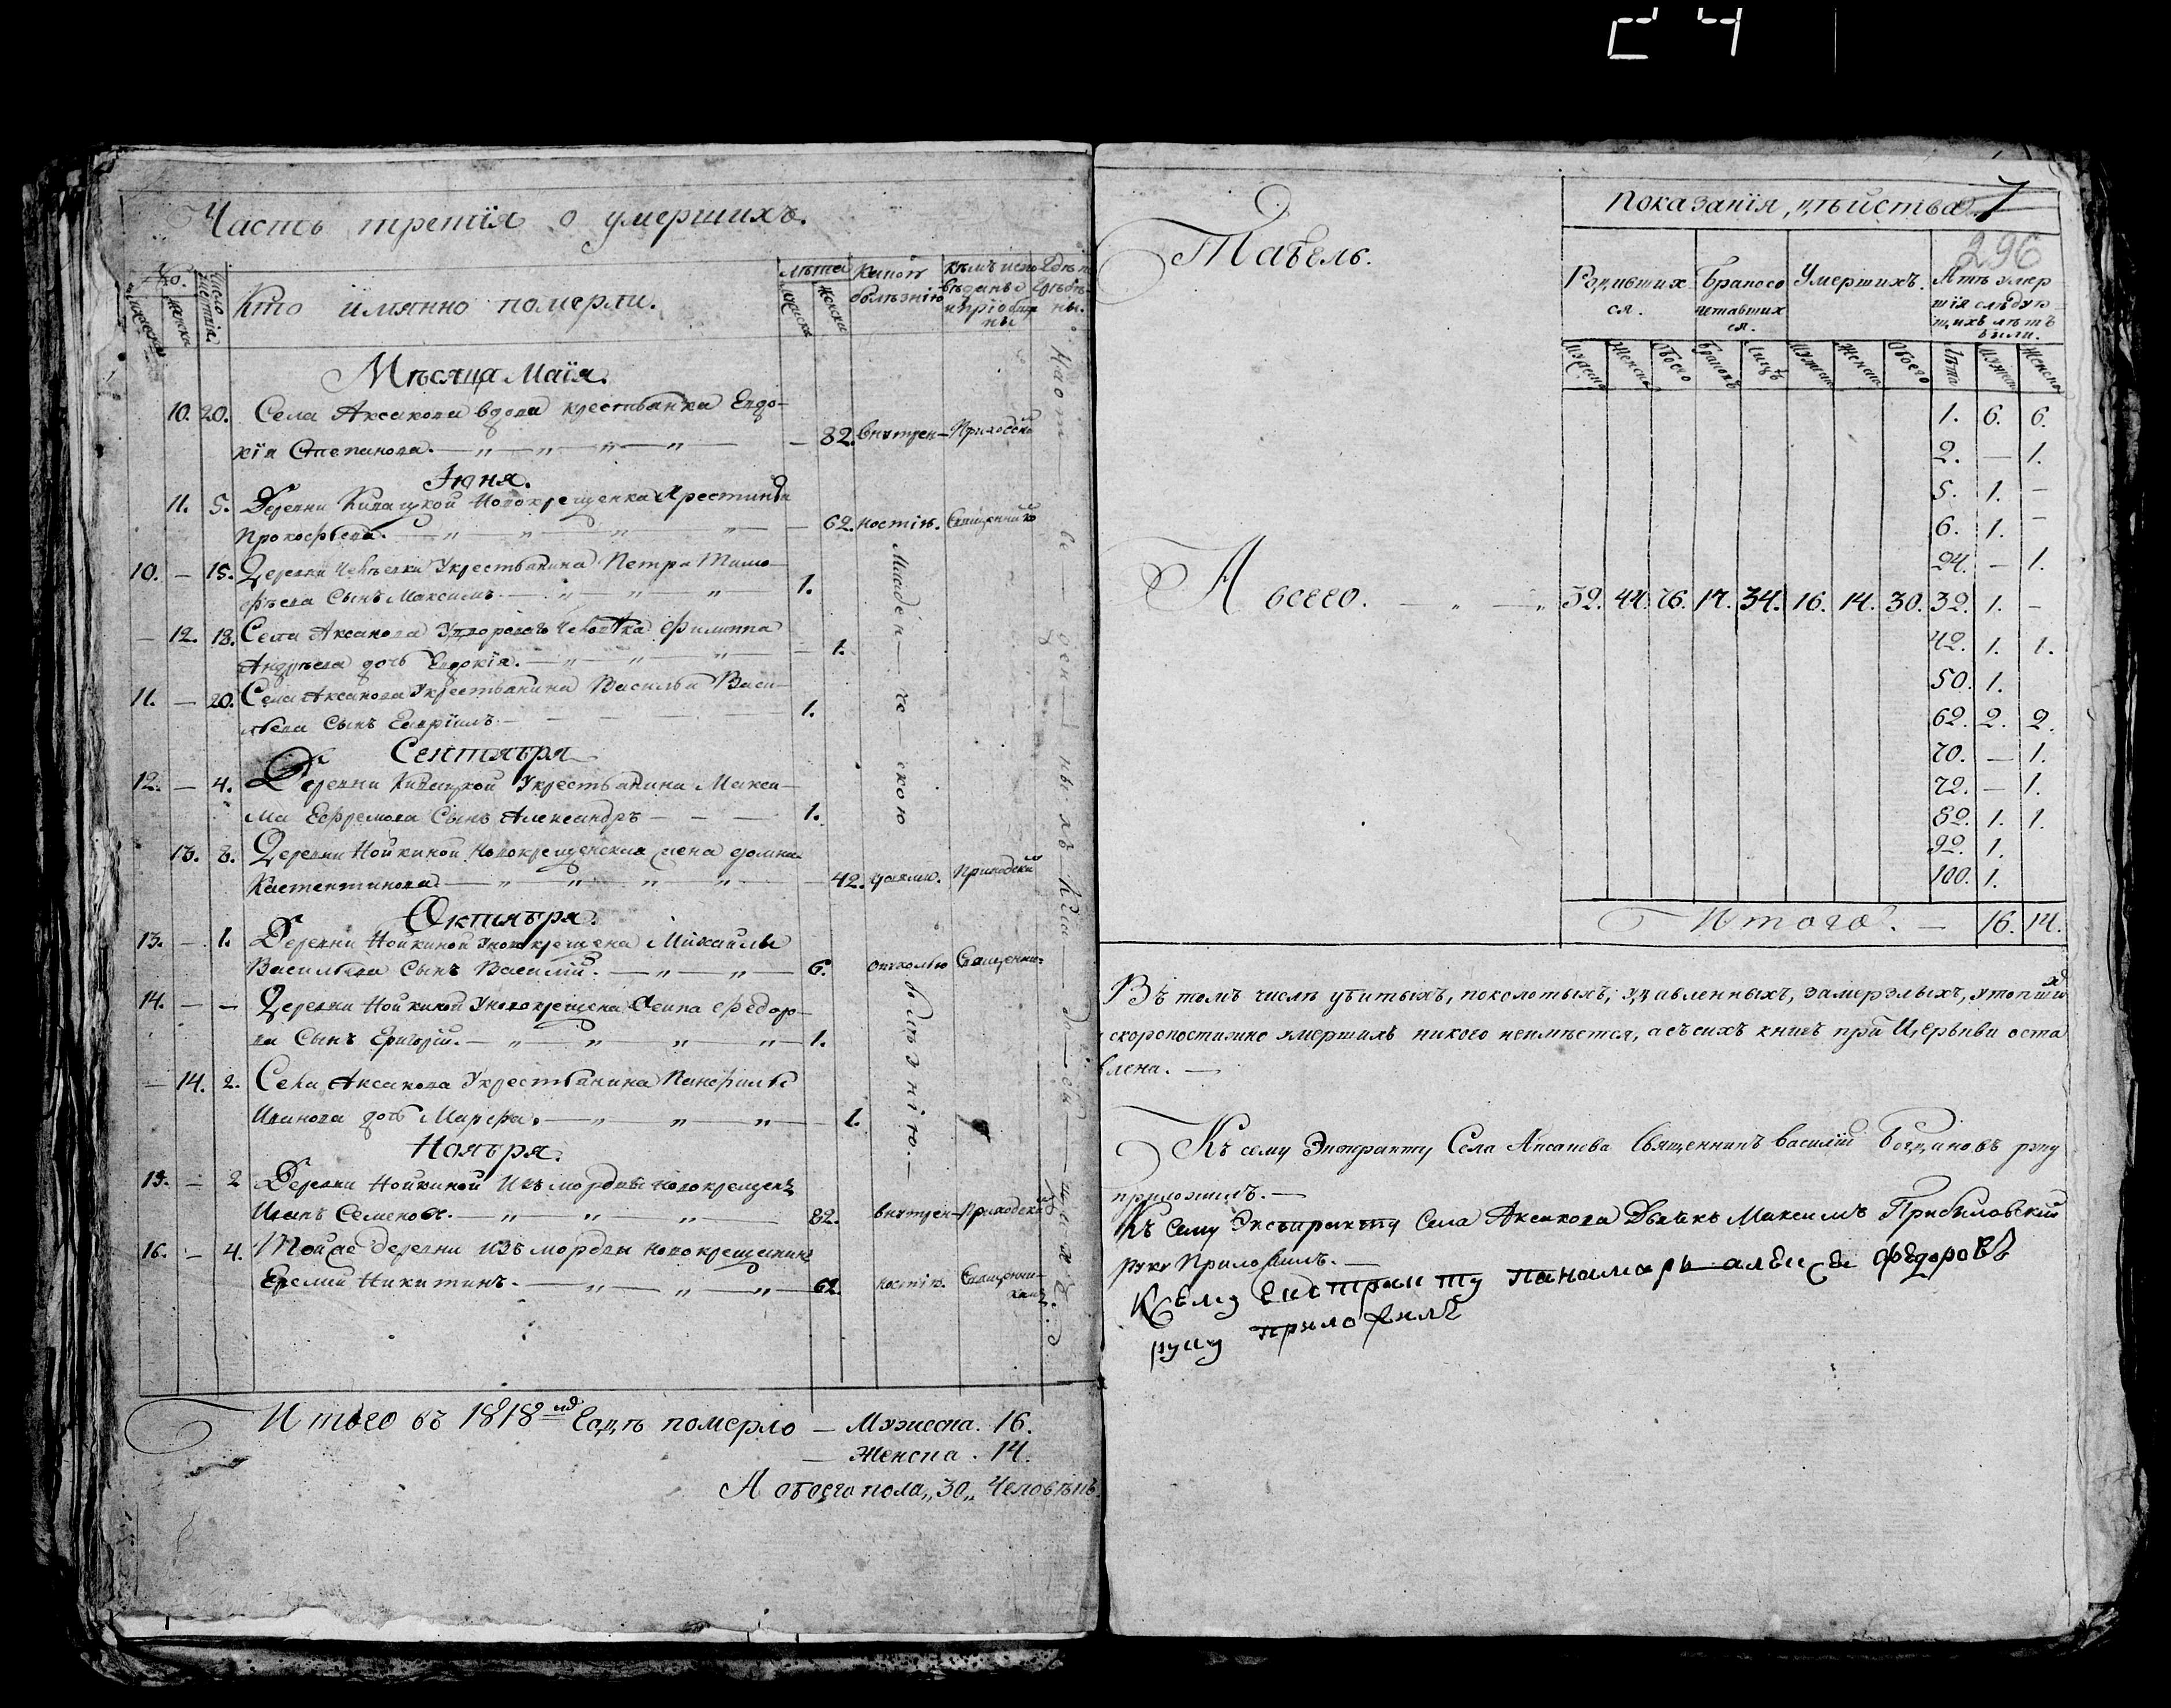 24
Часть третїя о умершихъ.
№.
Мужеска
Женска
Число смертїи
Кто имянно померли.
Лѣта
Мужска
Женска
Какою болѣзнїю
Кѣмъ исповѣданы и прїобщены
Гдѣ погребены.
Мѣсяца Маїя.
10. 20. Села Аксакова вдова крестьянка Евдо-
кїя Степанова. — 82. внутрен- Приходски
Іюня.
11. 5. Деревни Кивацкой Новокрещенка Крестинья
Прокофьева. — 62. ностїю. Священникъ
10. — 15. Деревни У Крестьянина Петра Тимо-
фѣева Сынъ Максимъ. — 1.
— 12. 18. Села Аксакова У Филиппа
Андрѣева дочь Евдокїя. — 1.
11. — 20. Села Аксакова У Крестьянина Василья Васи-
льева Сынъ Гаврїилъ. — 1.
Сентября
12. — 4. Деревни Кивацкой У Крестьянина Макси-
ма Ефремова Сынъ Александръ — 1.
13. 8. Деревни Нойкиной Новокрещенская жена Домна
Костентинова. — 42. Приходски
Октября.
13. — 1. Деревни Нойкиной У новокрещена Михайлы
Васильева Сынъ Василїй. — 6. Священни-
14. — — Деревни Нойкиной У новокрещена Осипа Федоро-
ва Сынъ Григорїй. — 1.
— 14. 2. Села Аксакова У Крестьянина Панфила
Иванова дочь Марфа. — 1.
Ноября.
15. — 2 Деревни Нойкиной Изъ мордвы новокрещенъ
Иванъ Семеновъ. — 82. внутрен- Приходски
16. — 4. Той же Деревни изъ мордвы новокрещенинъ
Еремей Никитинъ. — 62. ностїю. Священни-
комъ.
Младен — че — скою болѣзнїю. —
На от — ве — ден — ныхъ
Итого въ 1818мъ Годѣ померло — Мужеска. 16.
— Женска. 14.
А обоего пола „30„ Человѣкъ.
7
296
Табель.
Показанїя, дѣйства
Родившихся.
Бракосочетавшихся.
Умершихъ.
Лѣтъ умершїя слѣдующихъ лѣтъ были.
Мужска Женска Обоего Браковъ Лицъ Мужска Женска Обоего Лѣта Мужска Женска
1. 6. 6.
2. — 1.
5. 1. —
6. 1. —
24. — 1.
А всего. — 32. 44. 76. 17. 34. 16. 14. 30. 32. 1. —
42. 1. 1.
50. 1.
62. 2. 2.
70. — 1.
72. — 1.
82. 1. 1.
92. 1.
100. 1.
Итого. — 16. 14.
Въ томъ числѣ убитыхъ, поколотыхъ, удавленныхъ, замерзлыхъ, утопшихъ
скоропостижно умершихъ никого неимѣется, а съ сихъ книгъ при Церькви оста
влена. —
Къ сему Экстракту Села Аксакова Священникъ Василїй Богдановъ руку
приложилъ. —
Къ сему Экстракту Села Аксакова Дьячекъ Максимъ Прибыловский
руку Приложилъ. —
К сему Екстракту панамарь алексей федоровъ
руку приложилъ